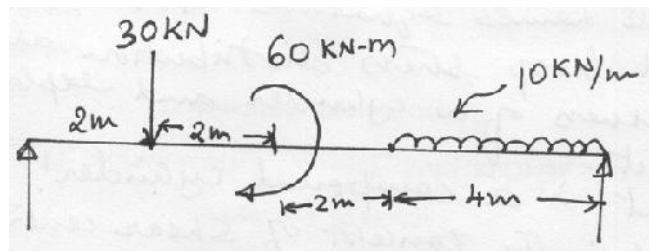 30KN
60 KN-m
10KN/m
2m
2m
2m
4m